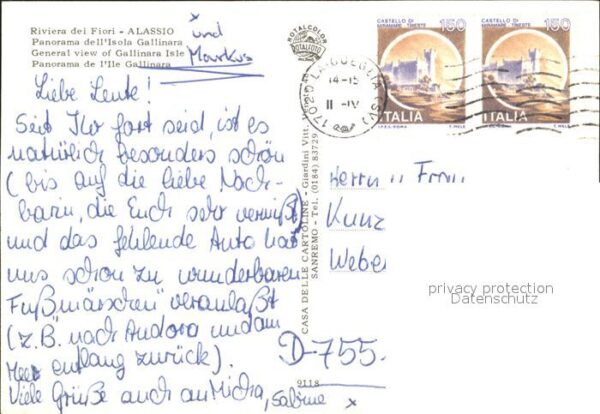 Riviera dei Fiori - ALASSIO
Panorama dell'Isola Gallinara
General view of Gallinara Isle
Panorama de l'Ile Gallinara
x
und
Markus
Liebe Leute!
Seit Ihr fort seid, ist es
natürlich besonders schön
(bis auf die liebe Nach-
barin, die Euch sehr vermißt)
und das fehlende Auto hat
uns schon zu wunderbaren
"Fußmärschen" veranlaßt
(z.B. nach Andora und am
Meer entlang zurück).
Viele Grüße auch an Micha, Sabine x
ROTALCOLOR
ROTALFOTO
CASA DELLE CARTOLINE - Giardini Vitt. Veneto
SANREMO - Tel. (0184) 83729
9118
17020 LAIGUEGLIA (SV)
14-15
11-IV
CASTELLO DI
MIRAMARE - TRIESTE
150
ITALIA
I.P.Z.S. ROMA
CASTELLO DI
MIRAMARE - TRIESTE
150
ITALIA
I.P.Z.S. ROMA
Herrn u Frau
Kunz
Weber
D-755
privacy protection
Datenschutz